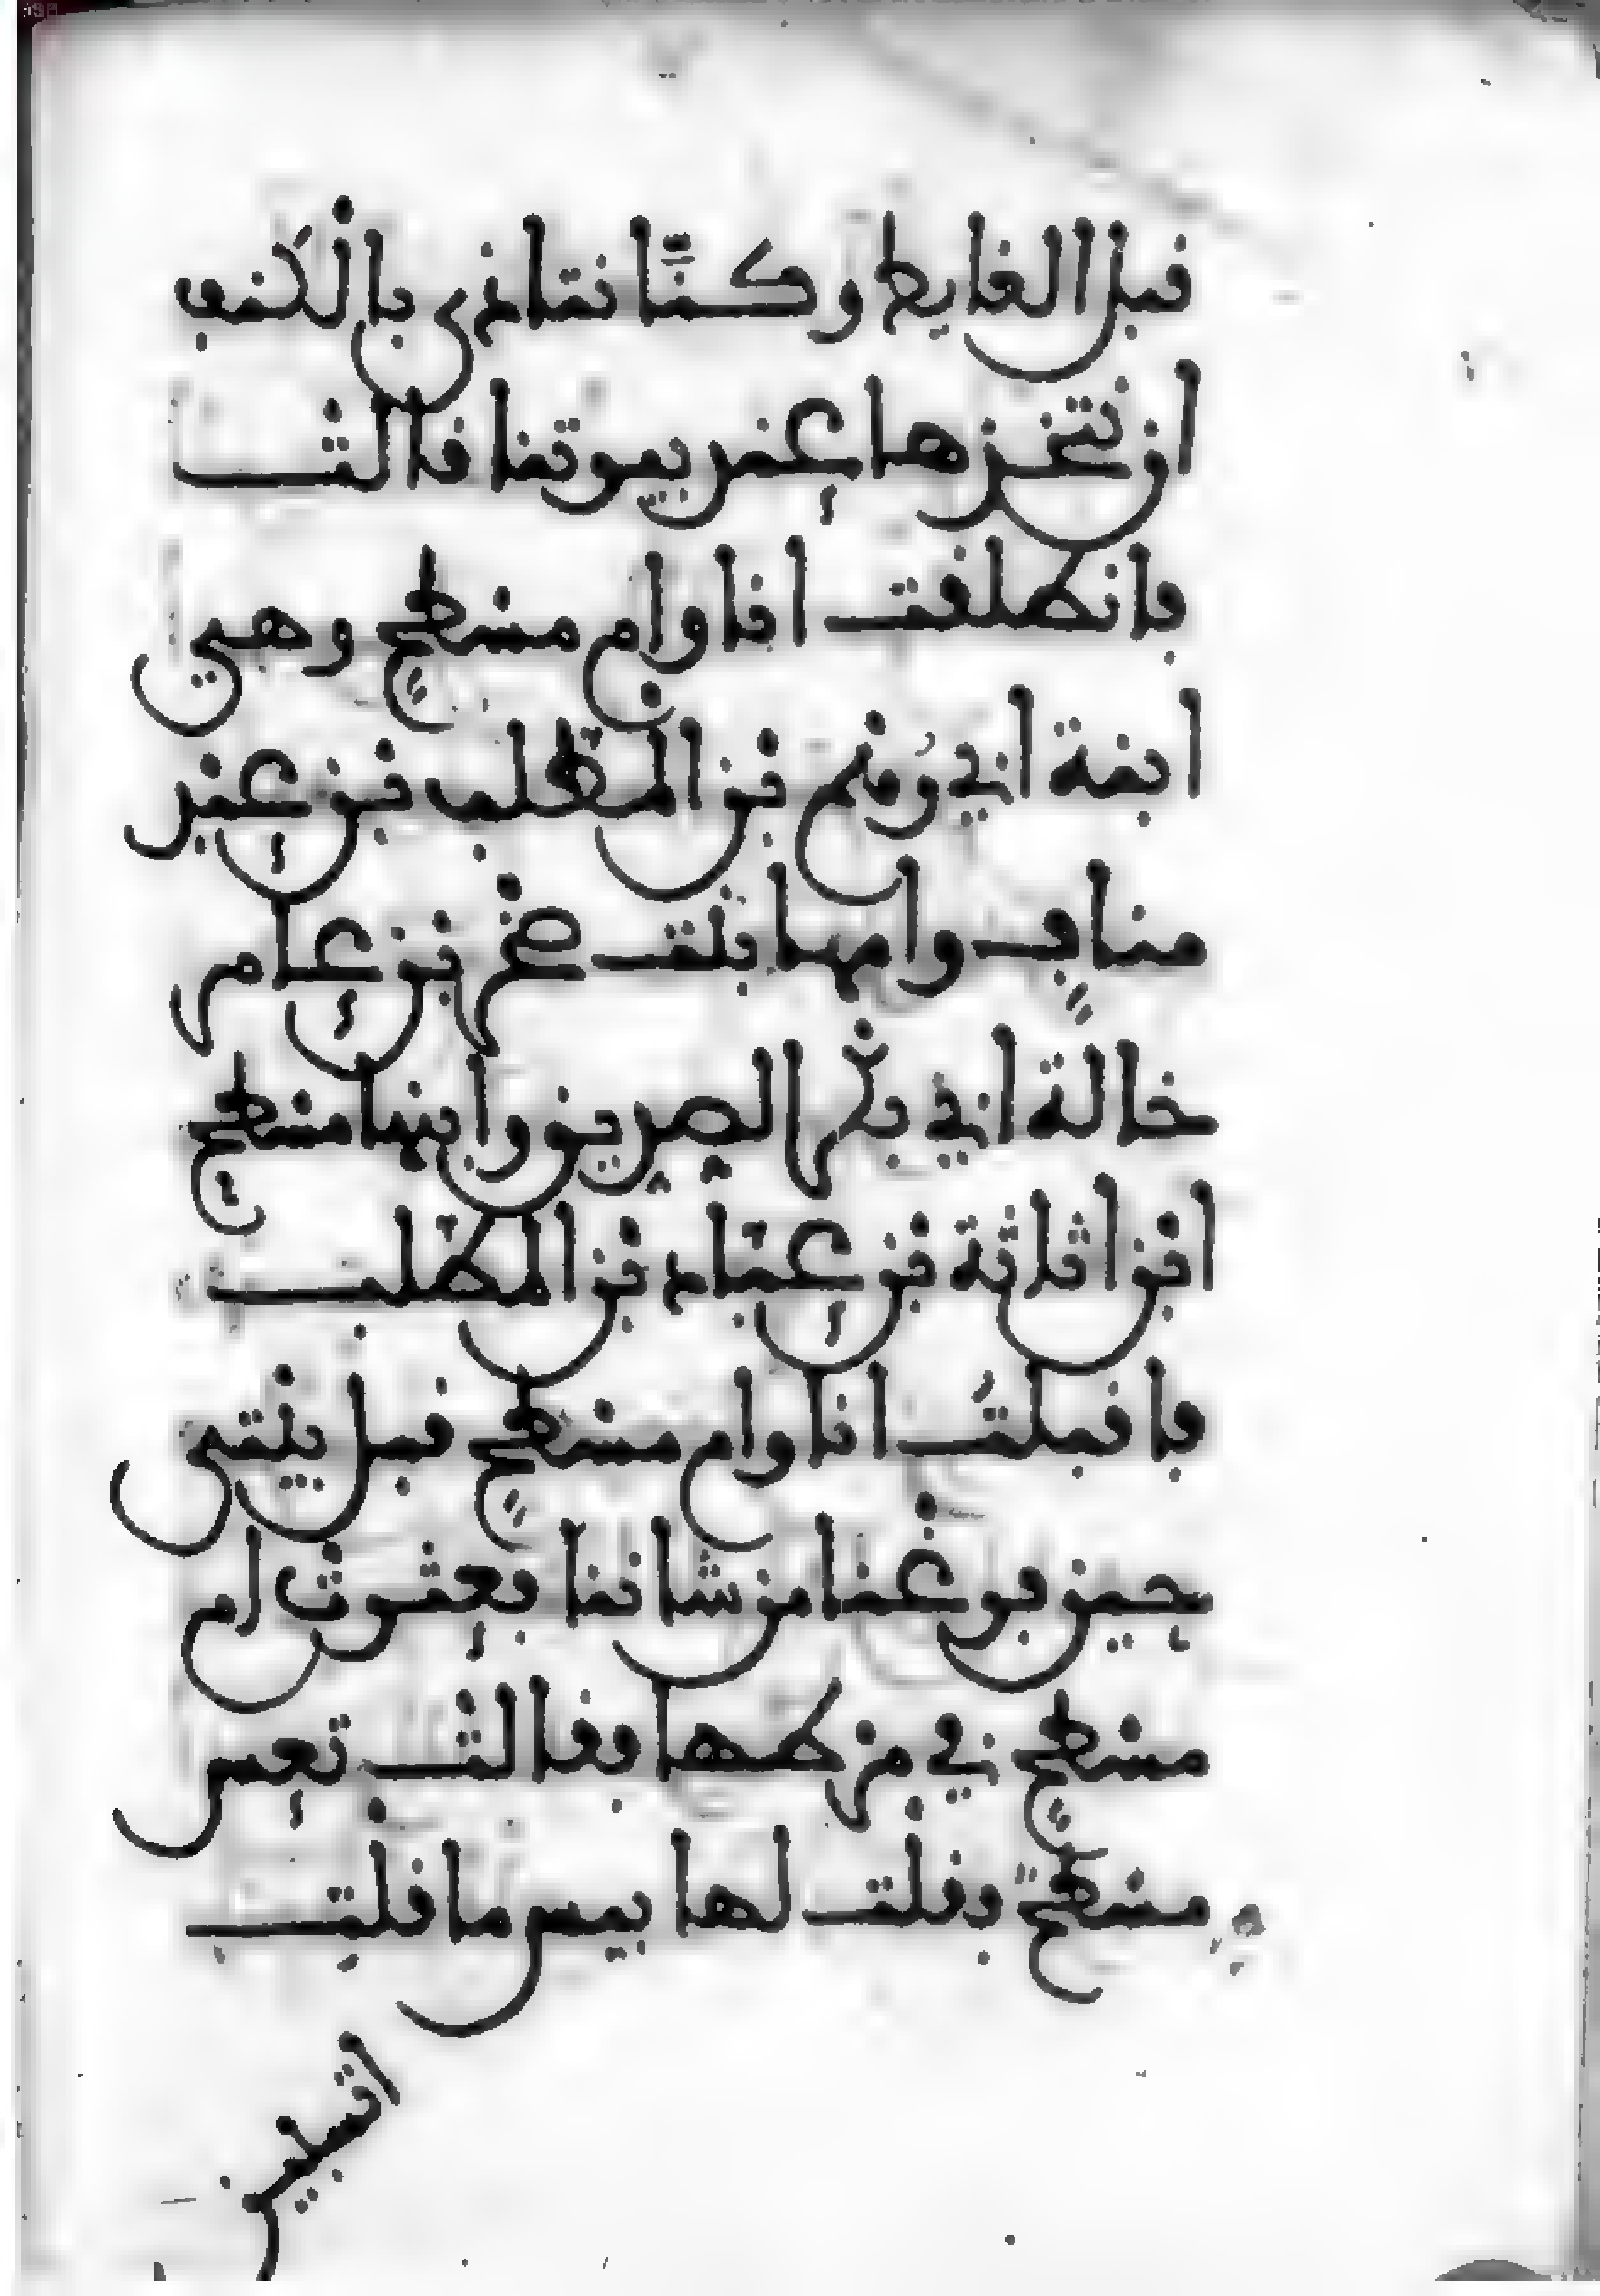 قبل الغايط وكنّا نتاذى بالكنف
ان نتخذها عند بيوتنا قالت
فانطلقت انا وام مسطح وهي
ابنة ابي رهم بن المطلب بن عبد
مناف وامها بنت صخر بن عامر
خالة ابي بكر الصديق وابنها مسطح
ابن اثاثة بن عبّاد بن المطلب
فاقبلتُ انا وام مسطح قبل بيتي
حين فرغنا من شاننا فعثرت ام
مسطح في مرطها فقالت تعس
مسطح فقلت لها بيس ما قلت
اتسبين